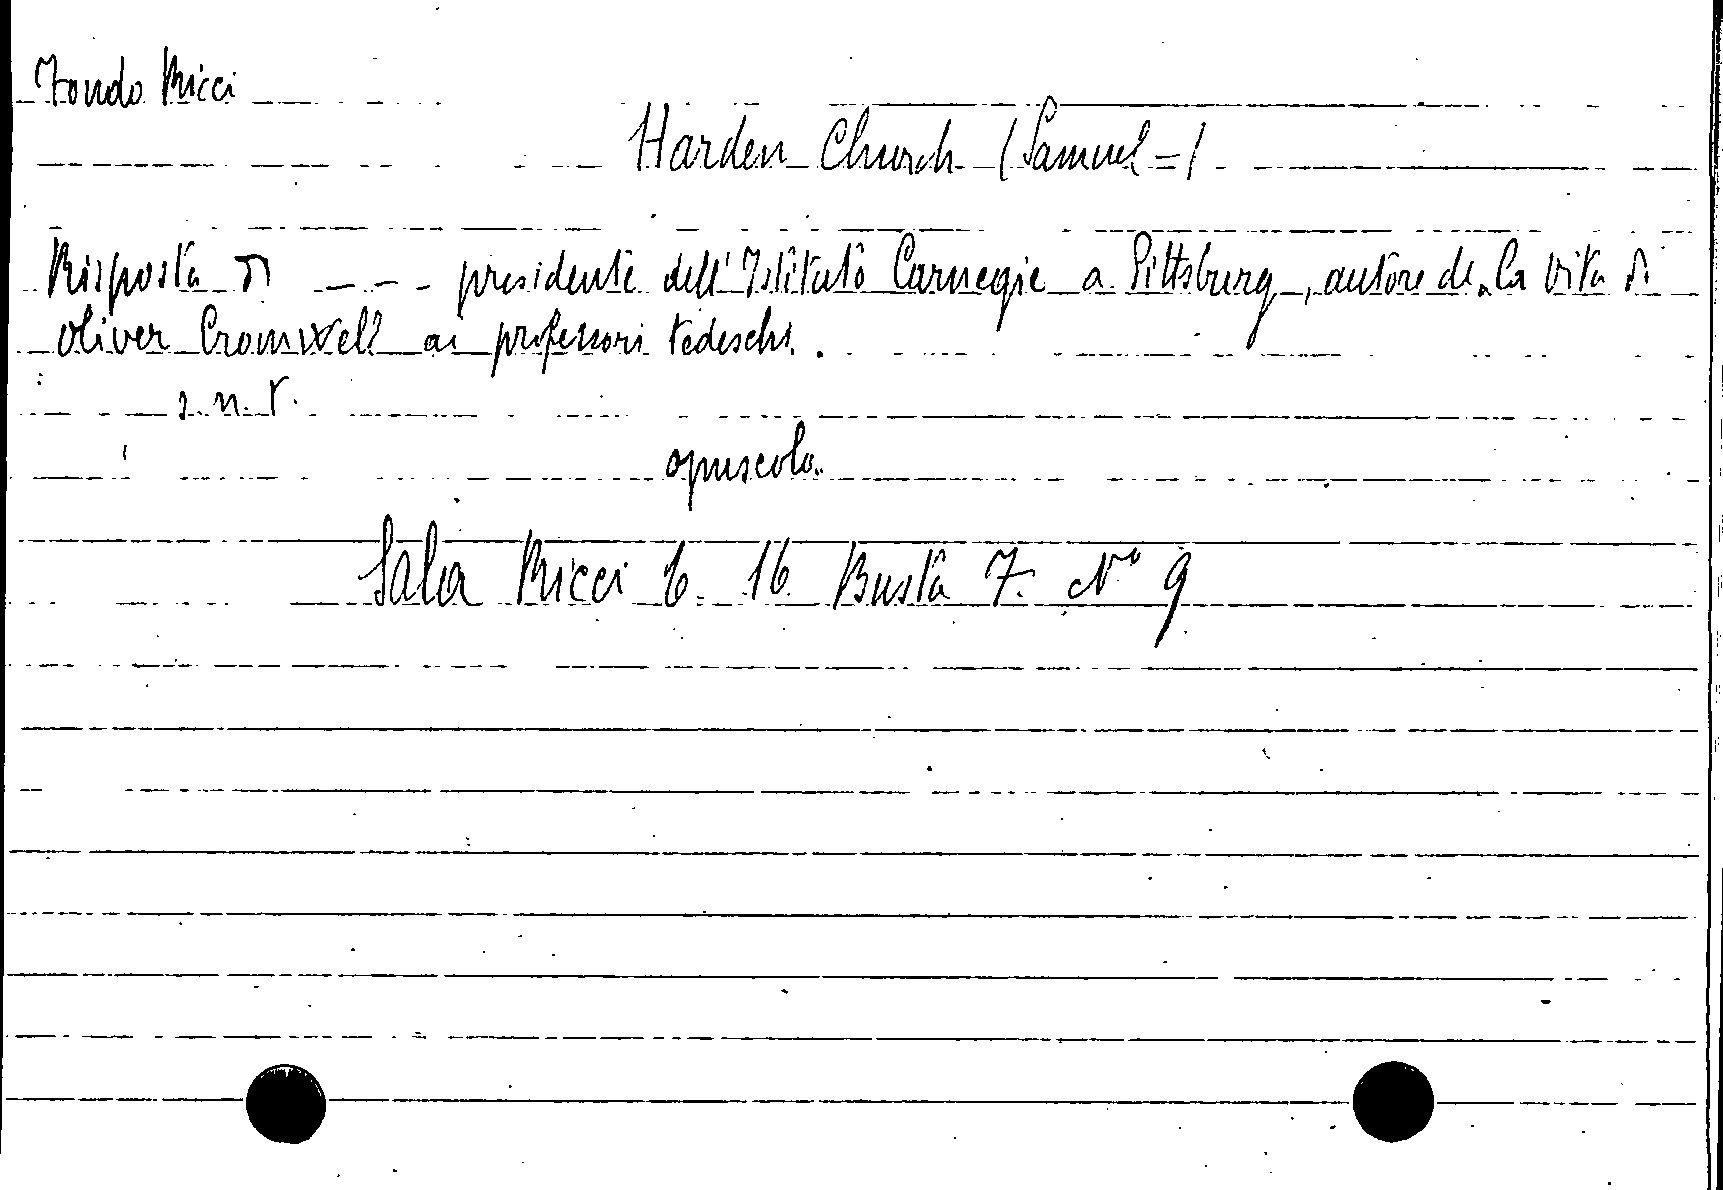 Fondo Ricci
Harden Church (Samuel=)
Risposta di ---- presidente dell'Istituto Carnegie a Pittsburg, autore de "La vita di
Oliver Cromwell ai professori tedeschi.
s.n.t.
opuscolo.
Sala Ricci 6. 16 Busta 7. N° 9